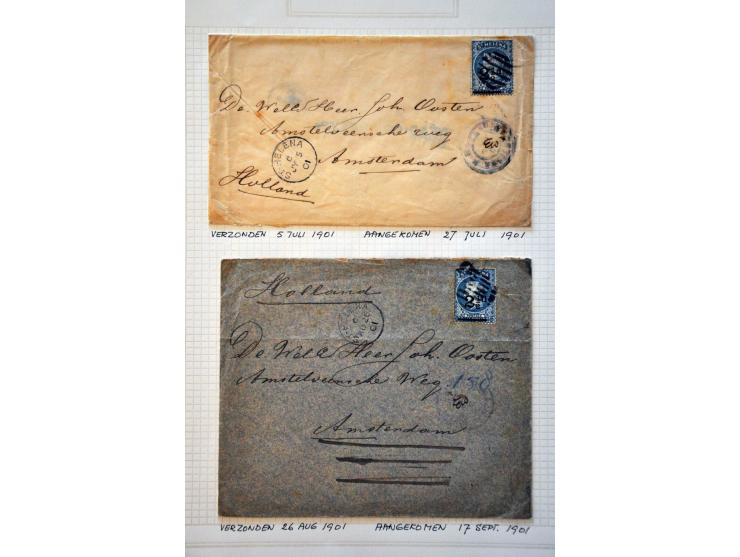 ST HELENA
De. Well. Heer. Joh. Oosten
Amstelveensche weg
Amsterdam
Holland
ST. HELENA
C
JY 5
01
VERZONDEN 5 JULI 1901 AANGEKOMEN 27 JULI 1901
Holland
De Well Heer Joh. Oosten
Amstelveensche Weg
158
Amsterdam
VERZONDEN 26 AUG 1901 AANGEKOMEN 17 SEPT. 1901